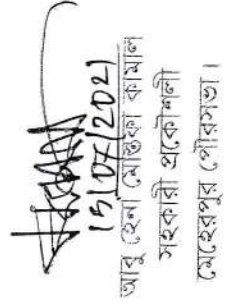 15/07/2021
আবু হেনা মোস্তফা কামাল
সহকারী প্রকৌশলী
মেহেরপুর পৌরসভা।